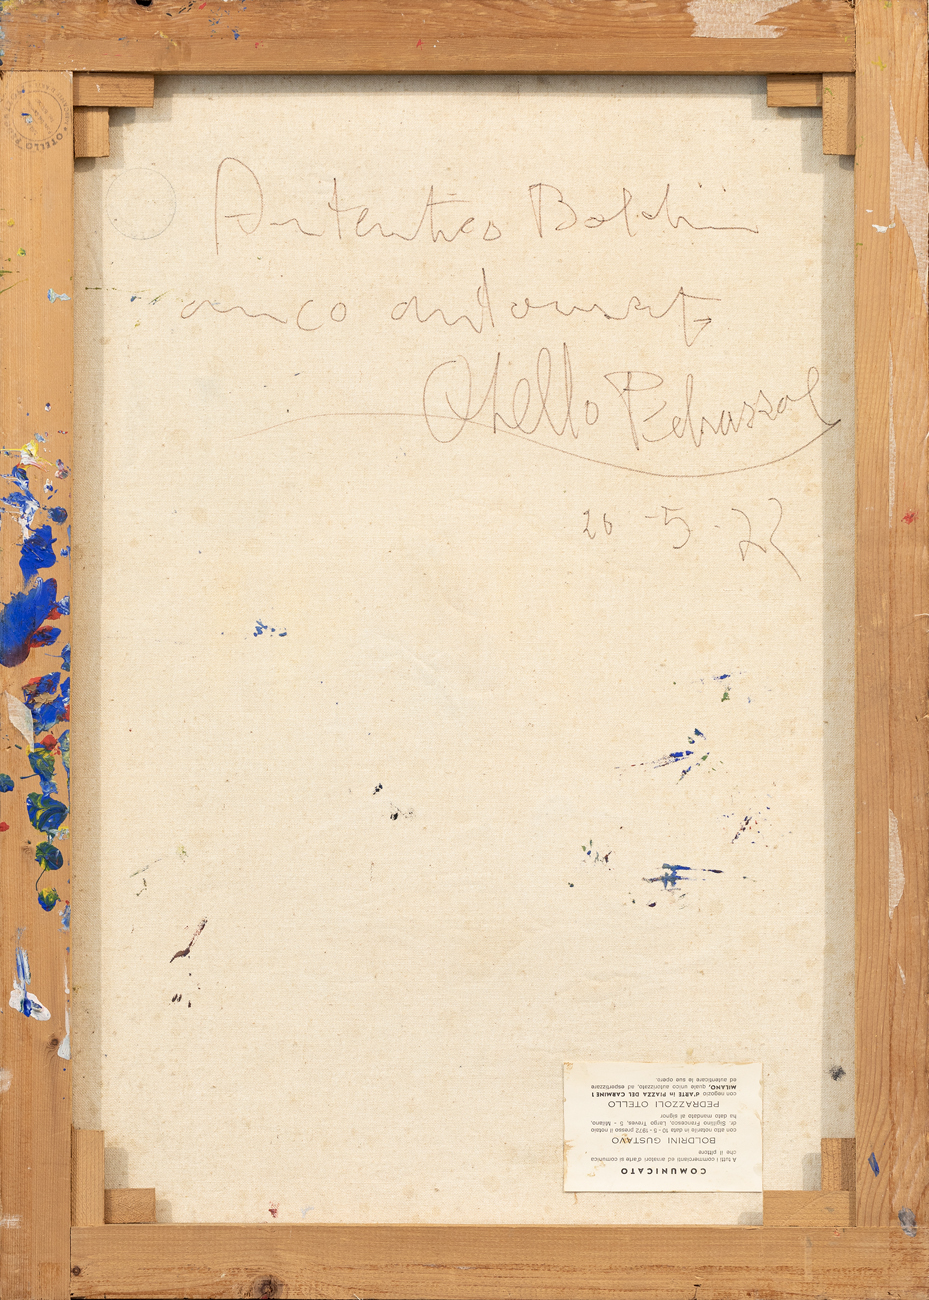 Autentico Boldrin
unico autorizzat
Otello Pedrazzoli
26-5-72
COMUNICATO
A tutti i commercianti ed amatori d'arte si comunica
che il pittore
BOLDRINI GUSTAVO
con atto notarile in data 10-5-1972 presso il notaio
dr. Sigilino Francesco, Largo Treves, 5 - Milano,
ha dato mandato al signor
PEDRAZZOLI OTELLO
con negozio d'ARTE in PIAZZA DEL CARMINE 1
MILANO, quale unico autorizzato, ad espertizzare
ed autenticare sue opere.
OTELLO